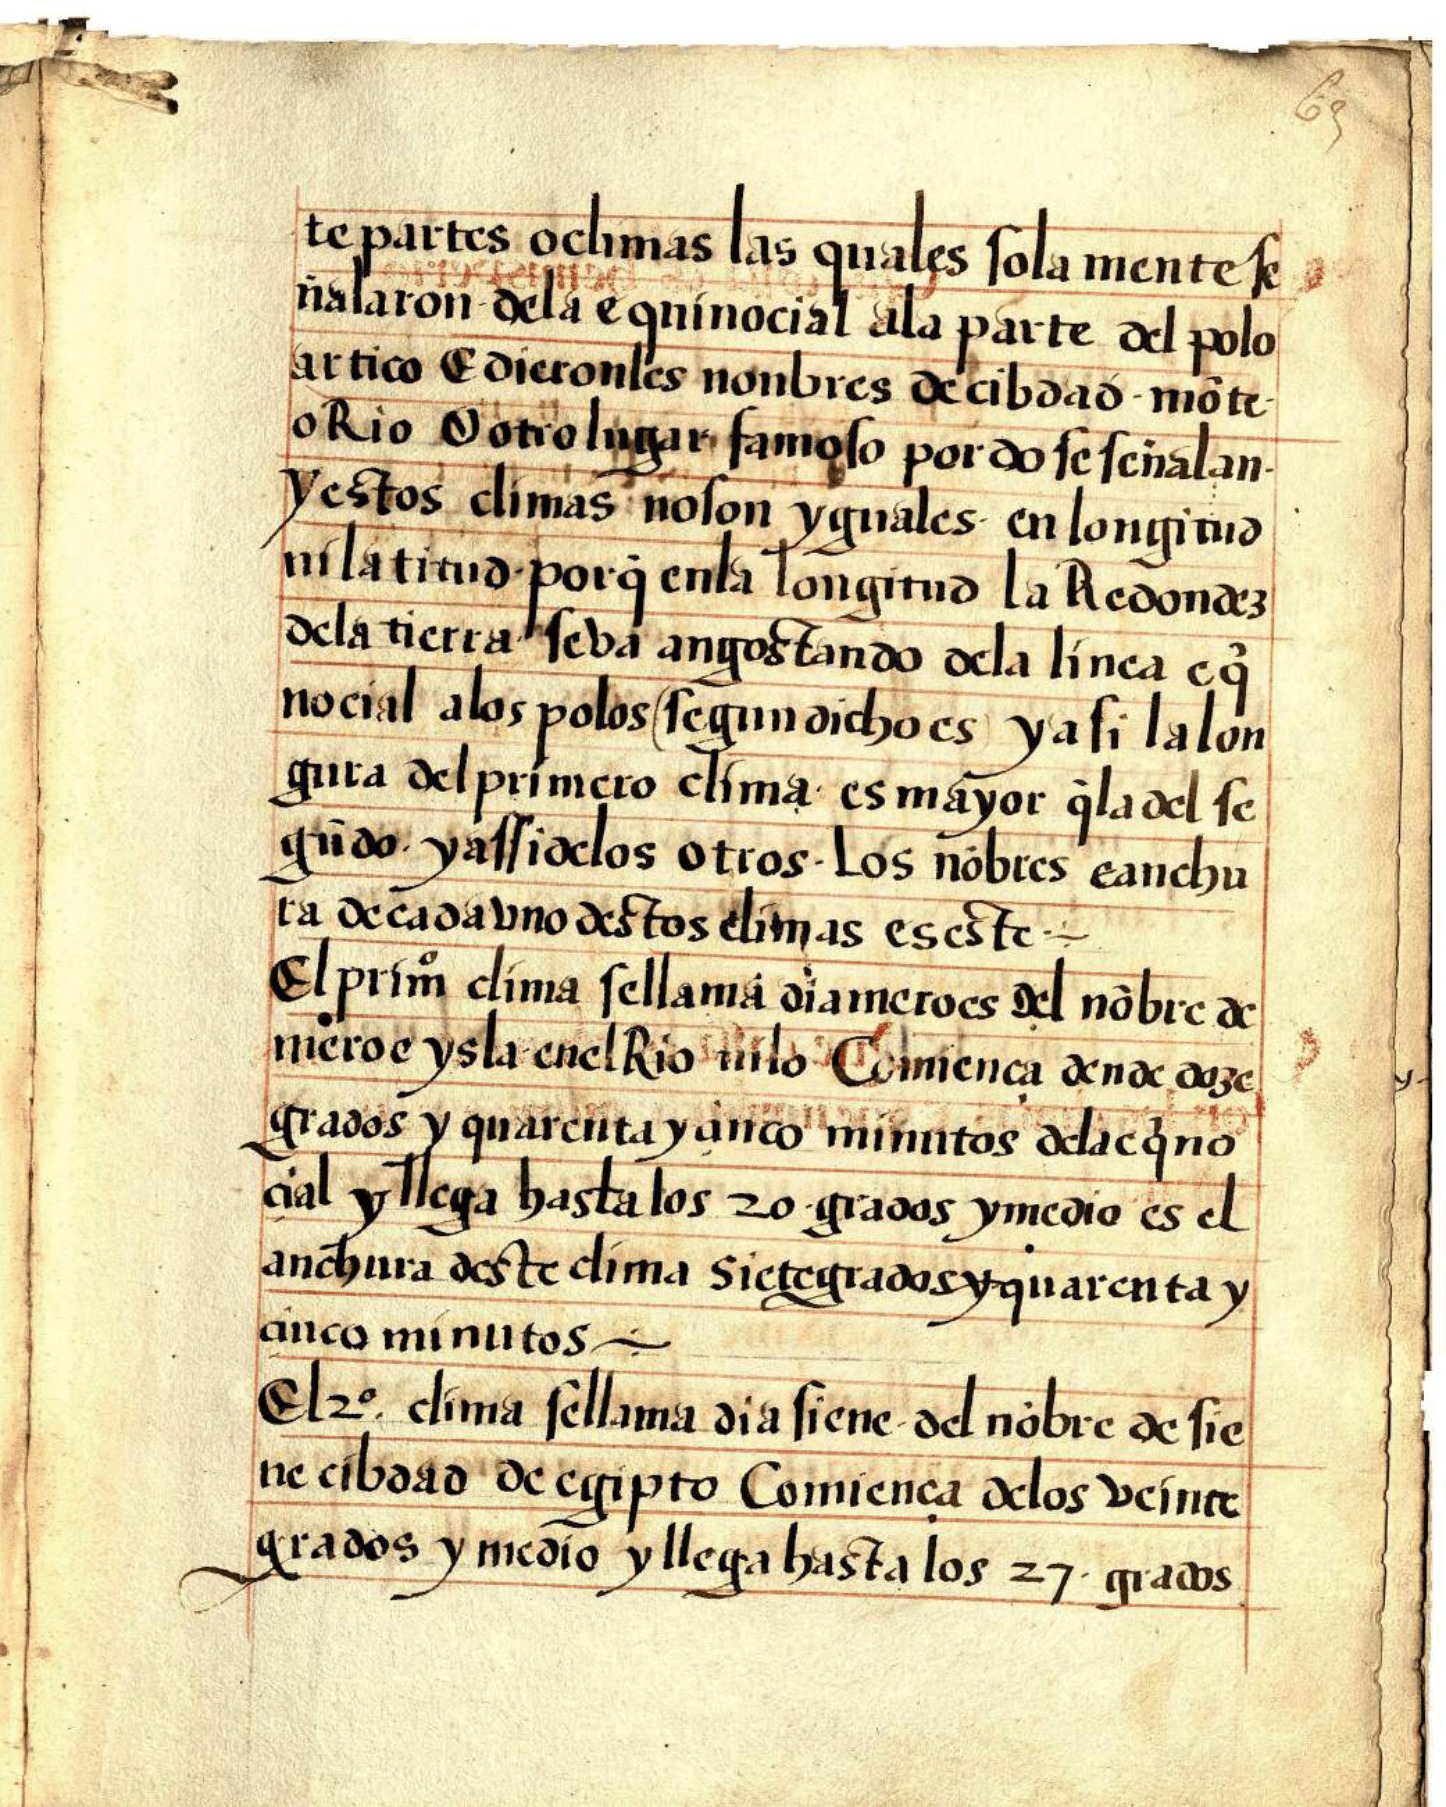 63
te partes o climas las quales sola mente se
ñalaron dela equinocial ala parte del polo
artico E dieronles nonbres de cibdad · mõte ·
o Rio O otro lugar famoso por do se señalan ·
y estos climas no son yguales · en longitud
ni latitud · porq̃ enla longitud la Redondez
dela tierra se va angostando dela linea eq̃
nocial alos polos (segun dicho es) y asi la lon
gura del primero clima · es mayor q̃ la del se
gũdo · y assi delos otros · Los nõbres e anchu
ra de cada vno destos climas es este ~
El primº clima se llama dia meroes Del nõbre de
meroe ysla enel Rio nilo Comiença dende doze
grados y quarenta y cinco minutos dela eq̃no
cial y llega hasta los 20 · grados y medio es el
anchura deste clima siete grados y quarenta y
cinco minutos ~
El 2º. clima se llama dia siene · del nõbre de sie
ne cibdad de egipto Comiença delos veinte
grados y medio y llega hasta los 27 · grados